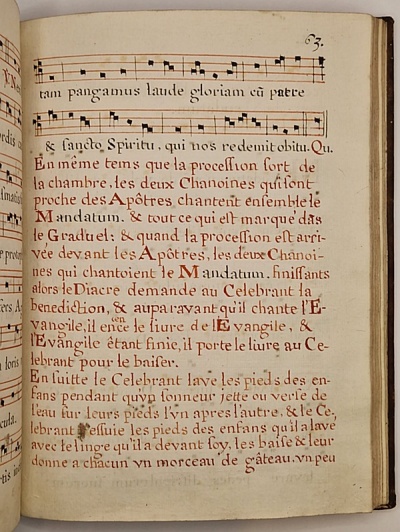 63.
tam pangamus laude gloriam cũ patre
& sancto Spiritu, qui nos redemit obitu. Qu.
En même tems que la procession sort de
la chambre, les deux Chanoines qui sont
proche des Apôtres, chantent ensemble le
Mandatum. & tout ce qui est marqué dãs
le Graduel: & quand la procession est arri-
vée devant les Apôtres, les deux Chanoi-
nes qui chantoient le Mandatum. finissants
alors le Diacre demande au Celebrant la
benediction, & auparavant qu'il chante l'E-
vangile, il encen le livre de l'Evangile, &
l'Evangile êtant finie, il porte le livre au Ce-
lebrant pour le baiser.
En suitte le Celebrant lave les pieds des en-
fans pendant qu'vn sonneur jette ou verse de
l'eau sur leurs pieds l'vn apres l'autre, & le Ce-
lebrant essuie les pieds des enfans qu'il a lavé
avec le linge qu'il a devant soy, les baise & leur
donne a chacun vn morceau de gâteau, vn peu